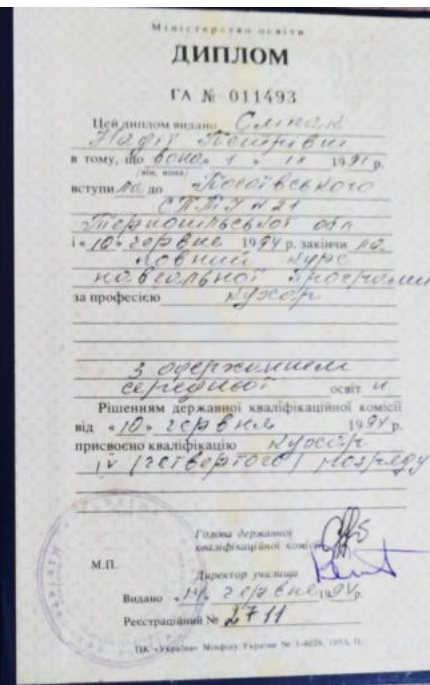 Міністерство освіти
ДИПЛОМ
ГА № 011493
Цей диплом видано Сліпак
Надії Петрівні
в тому, що вона " 1 " IX 1991 р.
(він, вона)
вступила до
СПТУ №21
Тернопільської обл
і « 10 » червня 1994 р. закінчила
повний курс
навчальної програми
за професією кухар
з одержанням
середньої освіти
Рішенням державної кваліфікаційної комісії
від « 10 » червня 1994 р.
присвоєно кваліфікацію кухар
IV (четвертого) розряду
Голова державної
кваліфікаційної комісії
М.П.
Директор училища
Видано « 14 » червня 1994 р.
Реєстраційний № 2711
ПК «Україна» Мінфіну України № 3-4029, 1993, II.